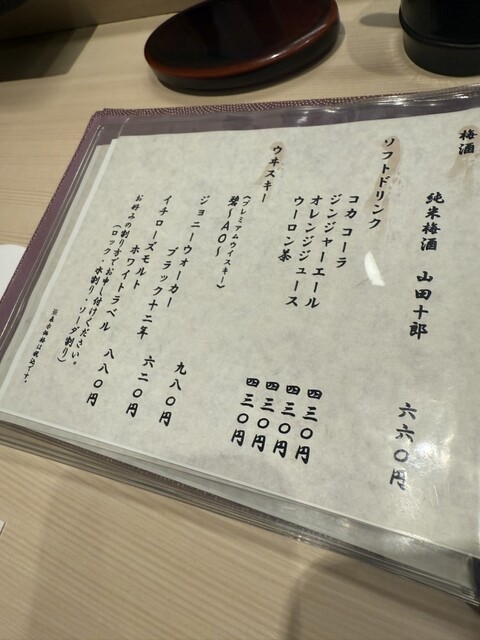 梅酒
純米梅酒 山田十郎 六六〇円
ソフトドリンク
コカコーラ 四三〇円
ジンジャーエール 四三〇円
オレンジジュース 四三〇円
ウーロン茶 四三〇円
ウヰスキー
(プレミアムウイスキー)
碧〜AO〜 九八〇円
ジョニーウォーカー ブラック十二年 六二〇円
イチローズモルト ホワイトラベル 八八〇円
お好みの割り方でお申し付けください。
(ロック・水割り・ソーダ割り)
※表示価格は税込です。